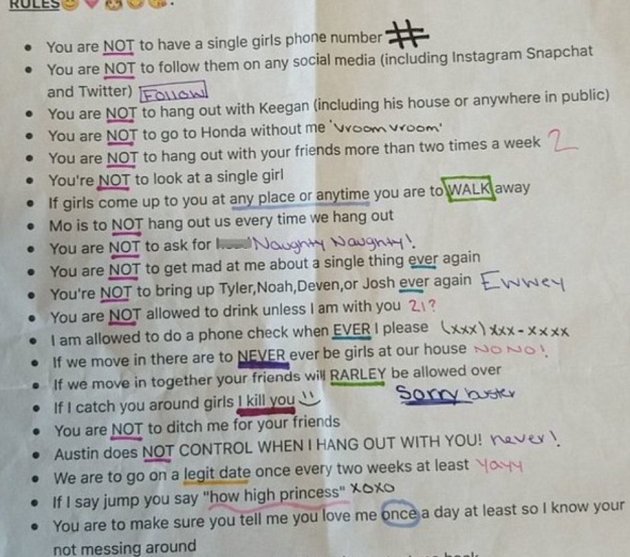 RULES
You are NOT to have a single girls phone number #
You are NOT to follow them on any social media (including Instagram Snapchat
and Twitter) FOLLOW
You are NOT to hang out with Keegan (including his house or anywhere in public)
You are NOT to go to Honda without me 'vroom vroom'
You are NOT to hang out with your friends more than two times a week 2
You're NOT to look at a single girl
If girls come up to you at any place or anytime you are to WALK away
Mo is to NOT hang out us every time we hang out
You are NOT to ask for Naughty Naughty!
You are NOT to get mad at me about a single thing ever again
You're NOT to bring up Tyler,Noah,Deven,or Josh ever again Ewwey
You are NOT allowed to drink unless I am with you 21?
I am allowed to do a phone check when EVER I please (xxx) xxx-xxxx
If we move in there are to NEVER ever be girls at our house NO NO!
If we move in together your friends will RARLEY be allowed over
If I catch you around girls I kill you Sorry buster
You are NOT to ditch me for your friends
Austin does NOT CONTROL WHEN I HANG OUT WITH YOU! never!
We are to go on a legit date once every two weeks at least Yayy
If I say jump you say "how high princess" xoxo
You are to make sure you tell me you love me once a day at least so I know your
not messing around